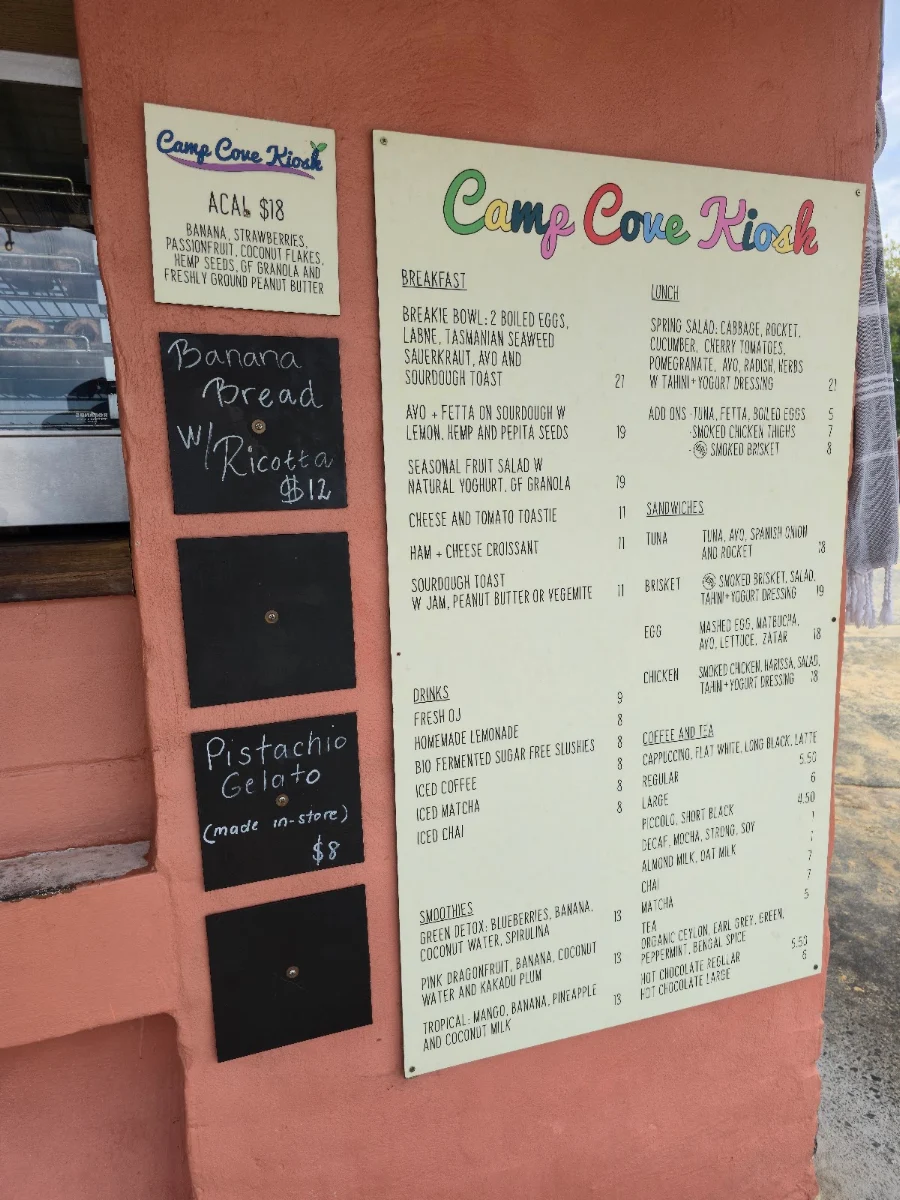 Camp Cove Kiosk
ACAI $18
BANANA, STRAWBERRIES,
PASSIONFRUIT, COCONUT FLAKES,
HEMP SEEDS, GF GRANOLA AND
FRESHLY GROUND PEANUT BUTTER
Banana
Bread
W/Ricotta
$12
Pistachio
Gelato
(made in-store)
$8
Camp Cove Kiosk
BREAKFAST
BREAKIE BOWL: 2 BOILED EGGS,
LABNE, TASMANIAN SEAWEED
SAUERKRAUT, AVO AND
SOURDOUGH TOAST 21
AVO + FETTA ON SOURDOUGH W
LEMON, HEMP AND PEPITA SEEDS 19
SEASONAL FRUIT SALAD W
NATURAL YOGHURT, GF GRANOLA 19
CHEESE AND TOMATO TOASTIE 11
HAM + CHEESE CROISSANT 11
SOURDOUGH TOAST
W JAM, PEANUT BUTTER OR VEGEMITE 11
DRINKS
FRESH OJ 9
HOMEMADE LEMONADE 8
BIO FERMENTED SUGAR FREE SLUSHIES 8
ICED COFFEE 8
ICED MATCHA 8
ICED CHAI 8
SMOOTHIES
GREEN DETOX: BLUEBERRIES, BANANA, 13
COCONUT WATER, SPIRULINA
PINK DRAGONFRUIT, BANANA, COCONUT 13
WATER AND KAKADU PLUM
TROPICAL: MANGO, BANANA, PINEAPPLE 13
AND COCONUT MILK
LUNCH
SPRING SALAD: CABBAGE, ROCKET,
CUCUMBER, CHERRY TOMATOES,
POMEGRANATE, AVO, RADISH, HERBS
W TAHINI+YOGURT DRESSING 21
ADD ONS -TUNA, FETTA, BOILED EGGS 5
-SMOKED CHICKEN THIGHS 7
- SMOKED BRISKET 8
SANDWICHES
TUNA TUNA, AVO, SPANISH ONION
AND ROCKET 18
BRISKET SMOKED BRISKET, SALAD,
TAHINI+YOGURT DRESSING 19
EGG MASHED EGG, MATBUCHA,
AVO, LETTUCE, ZATAR 18
CHICKEN SMOKED CHICKEN, HARISSA, SALAD,
TAHINI+YOGURT DRESSING 18
COFFEE AND TEA
CAPPUCCINO, FLAT WHITE, LONG BLACK, LATTE
REGULAR 5.50
LARGE 6
PICCOLO, SHORT BLACK 4.50
DECAF, MOCHA, STRONG, SOY 1
ALMOND MILK, OAT MILK 1
CHAI 7
MATCHA 7
TEA 5
ORGANIC CEYLON, EARL GREY, GREEN,
PEPPERMINT, BENGAL SPICE
HOT CHOCOLATE REGULAR 5.50
HOT CHOCOLATE LARGE 6